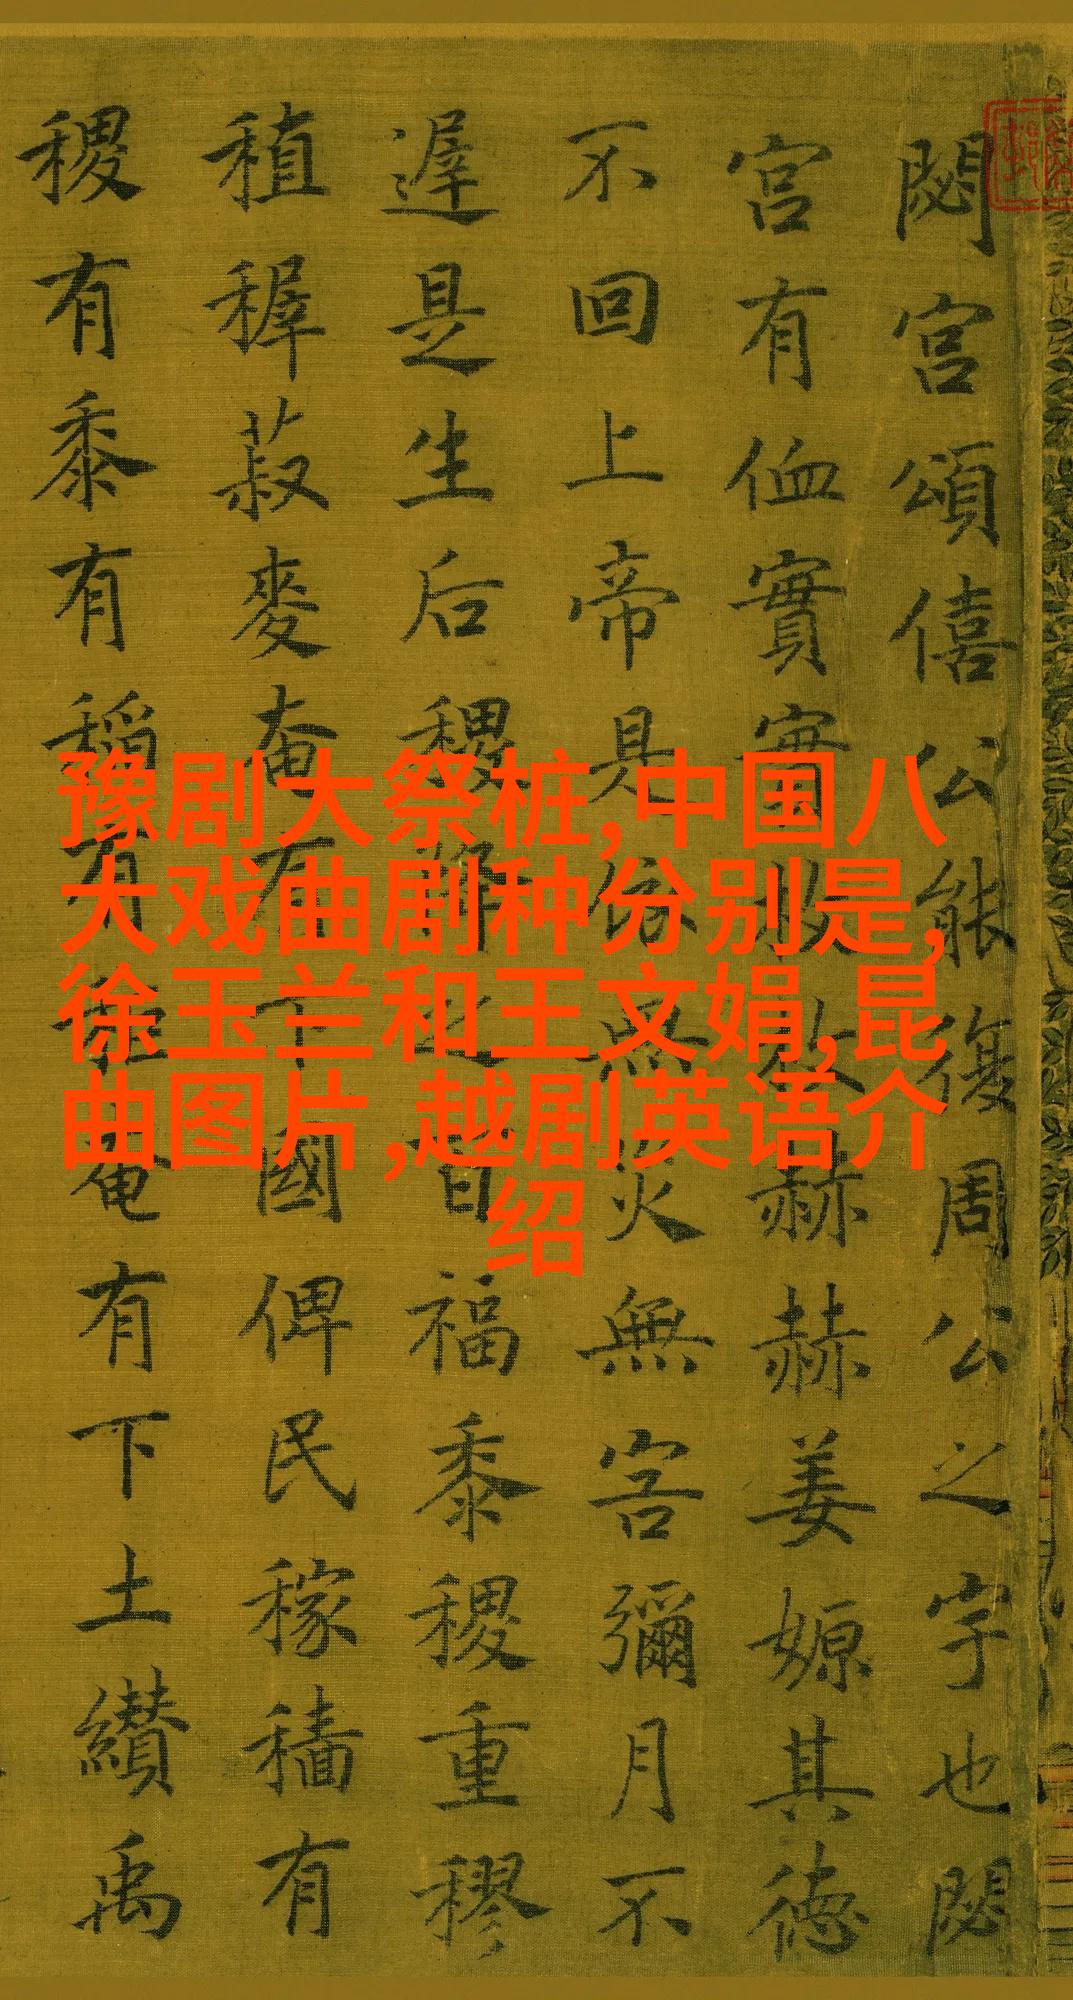 豫剧大祭桩,中国八
大戏曲剧种分别是,
徐玉兰和王文娟,昆
曲图片,越剧英语介
绍
閟宫頌僖公能復周公之宇也閟
宫有侐實實枚枚赫赫姜嫄其德
不回上帝是依無災無害彌月不
遲是生后稷降之百福黍稷重穋
稙稺菽麥奄有下國俾民稼穡有
稷有黍有稻有秬奄有下土纘禹